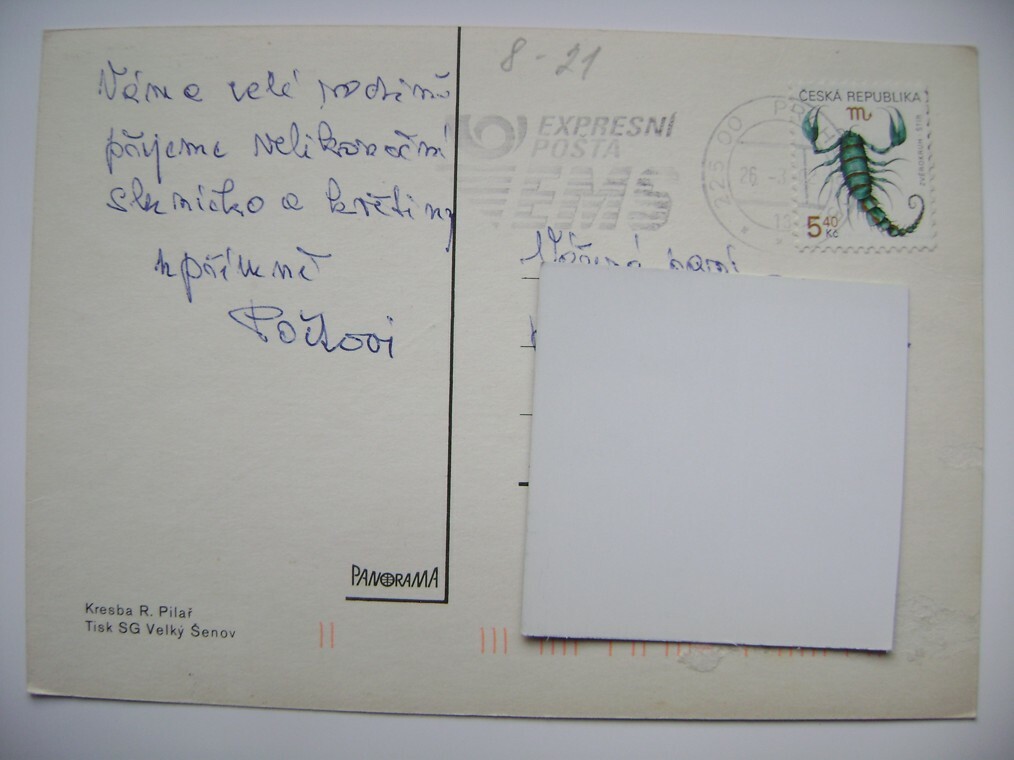 8-21
Vám a celé rodině
přejeme velikonoční
sluníčko a květiny
upřímně
EXPRESNÍ
POŠTA
EMS
225 00 PRAHA
26.-3.
ČESKÁ REPUBLIKA
♏
ZVĚROKRUH ŠTÍR
5 40 Kč
Vážená paní
PANORAMA
Kresba R. Pilař
Tisk SG Velký Šenov